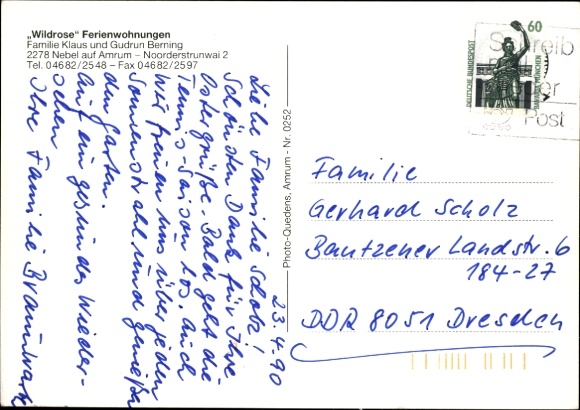 „Wildrose“ Ferienwohnungen
Familie Klaus und Gudrun Berning
2278 Nebel auf Amrum – Noorderstrunwai 2
Tel. 04682/2548 – Fax 04682/2597
23.4.90
Liebe Familie Scholz!
Schönsten Dank für Ihre
Ostergrüße. Bald geht die
Tennis-Saison los. Auch
wir freuen uns über jeden
Sonnenstrahl und genießen
den Garten.
Auf ein gesundes Wieder-
sehen
Ihre Familie
Photo-Quedens, Amrum - Nr. 0252
60
DEUTSCHE BUNDESPOST
MÜNCHEN
Schreib
Post
Familie
Gerhard Scholz
Bautzener Landstr. 6
184-27
DDR 8051 Dresden